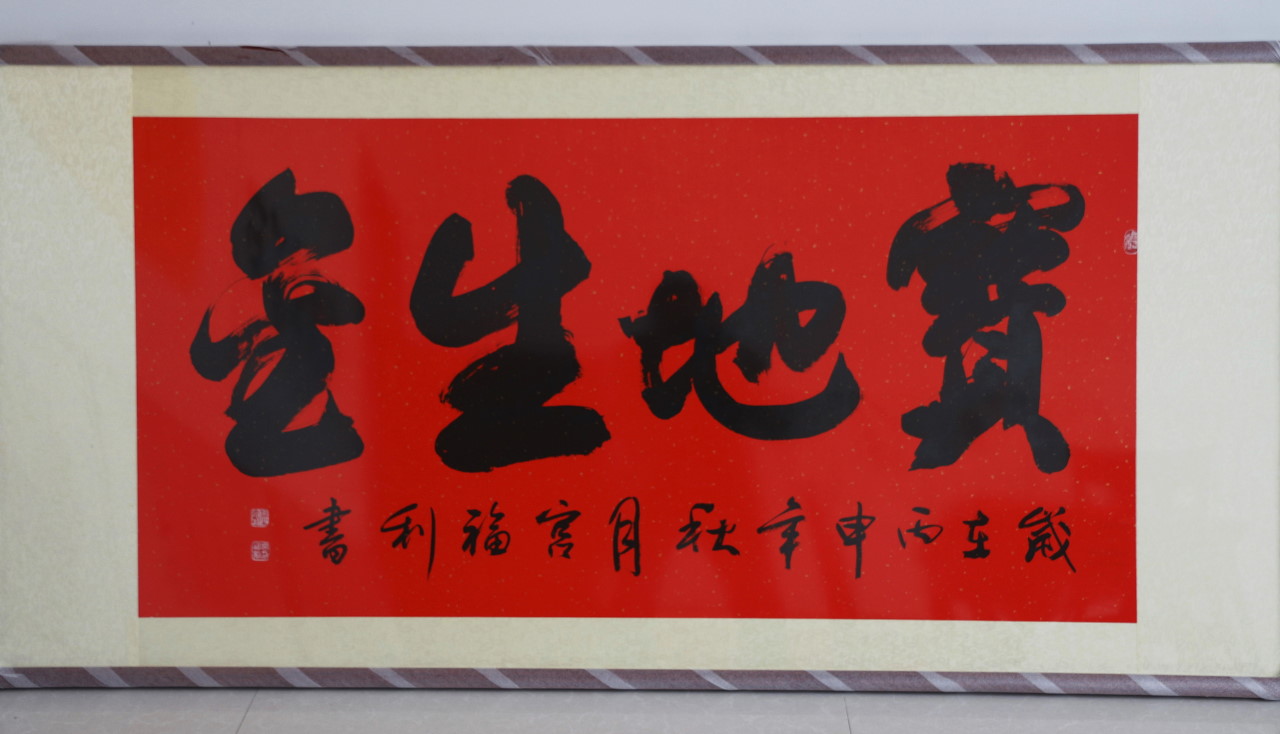 寶地生金
歲在丙申年秋月宫福利書